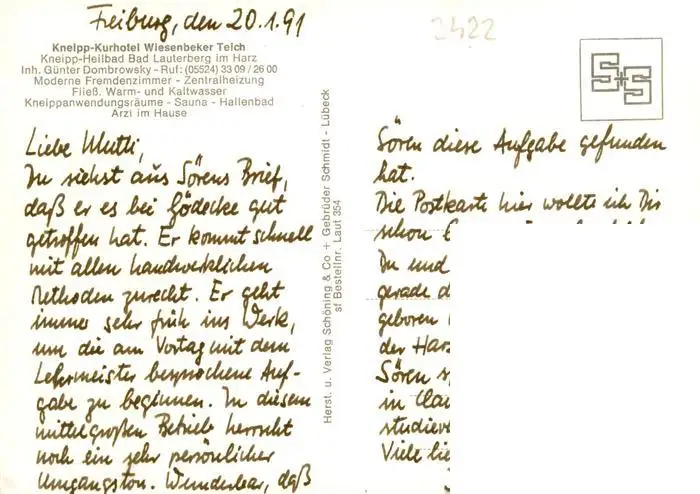 Freiburg, den 20.1.91
2422
Kneipp-Kurhotel Wiesenbeker Teich
Kneipp-Heilbad Bad Lauterberg im Harz
Inh. Günter Dombrowsky - Ruf: (05524) 33 09 / 26 00
Moderne Fremdenzimmer - Zentralheizung
Fließ. Warm- und Kaltwasser
Kneippanwendungsräume - Sauna - Hallenbad
Arzt im Hause
Liebe Mutti,
Du siehst aus Sörens Brief,
daß er es bei Gödecke gut
getroffen hat. Er kommt schnell
mit allen handwerklichen
Methoden zurecht. Er geht
immer sehr früh ins Werk,
um die am Vortag mit dem
Lehrmeister besprochene Auf-
gabe zu beginnen. In diesem
mittelgroßen Betrieb herrscht
noch ein sehr persönlicher
Umgangston. Wunderbar, daß
Herst. u. Verlag Schöning & Co + Gebrüder Schmidt - Lübeck
sf Bestellnr. Laut 354
S+S
Sören diese Aufgabe gefunden
hat.
Die Postkarte hier wollte ich Dir
schon
Du und
gerade
geboren
der Harz
Sören
in
studier
Viele